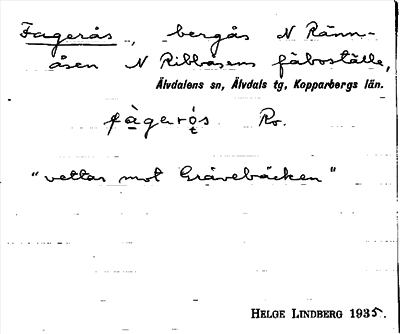 Fagerås, bergås N Ränn-
åsen N Ribbåsens fäboställe,
Älvdalens sn, Älvdals tg, Kopparbergs län.
fàgerọs Ro.
"vettar mot Gråvebäcken"
HELGE LINDBERG 1935.